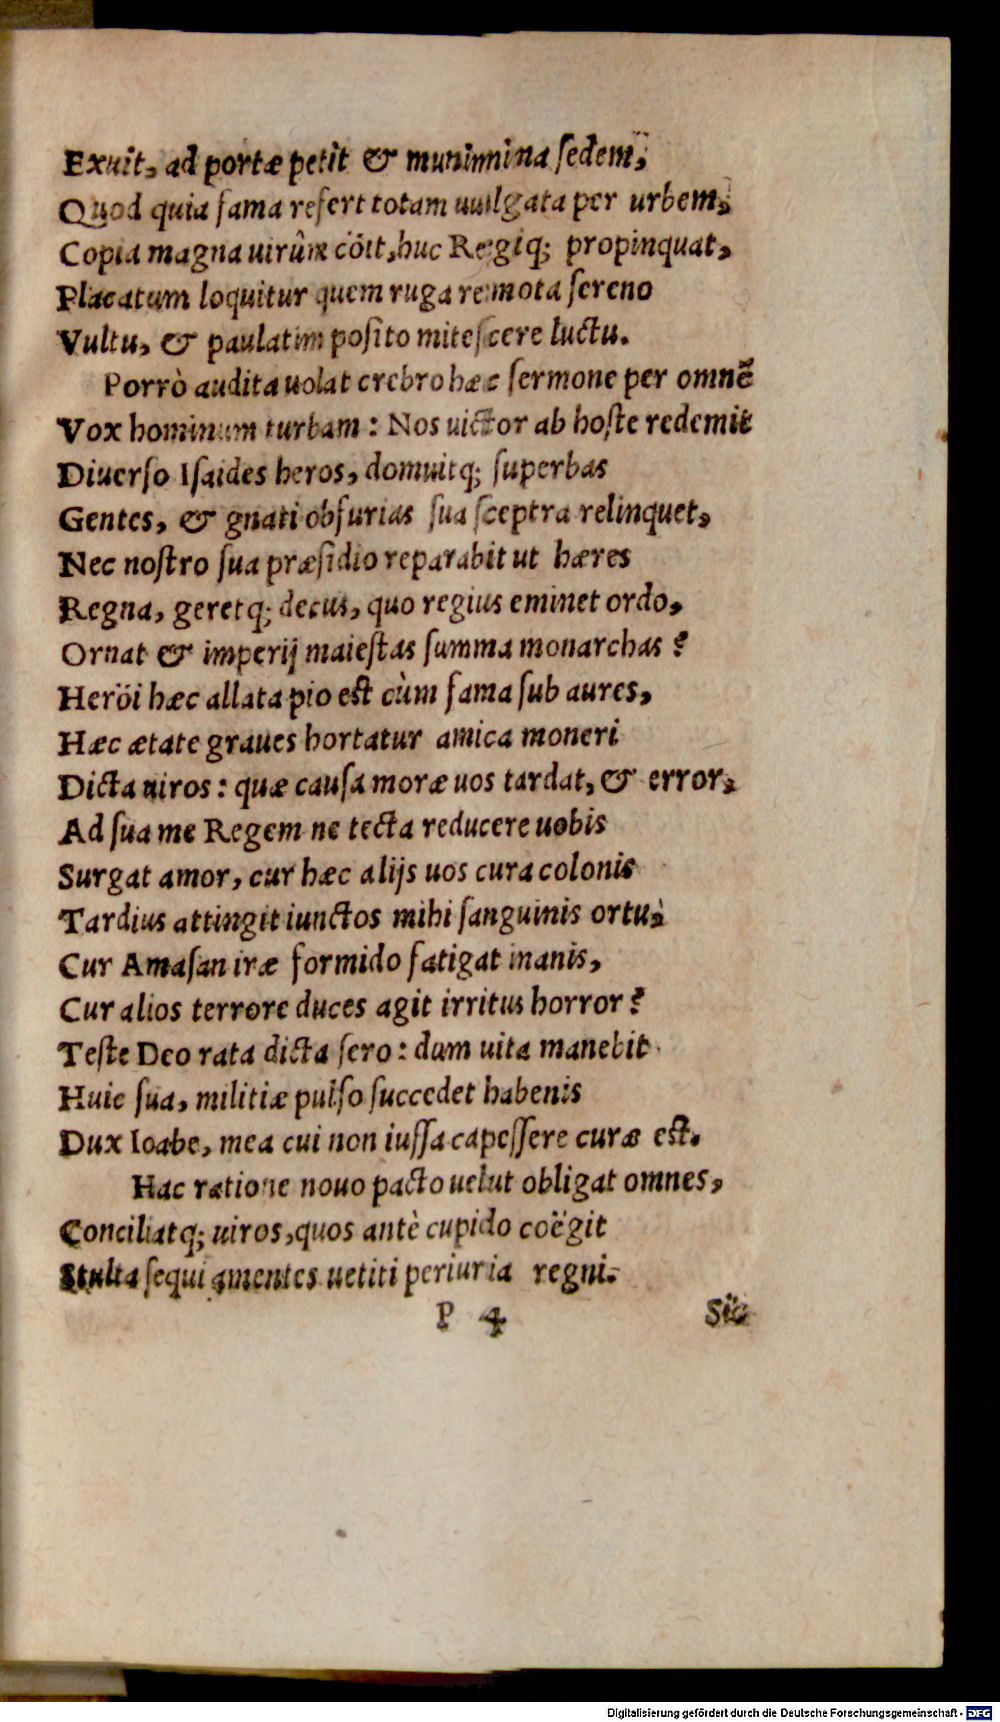 Exuit, ad portæ petit & munimina ſedem,
Quod quia fama refert totam uulgata per urbem,
Copia magna uirûm cöit, huc Regiq; propinquat,
Placatum loquitur quem ruga remota ſereno
Vultu, & paulatim poſito miteſcere luctu.
Porrò audita uolat crebro hæc ſermone per omnẽ
Vox hominum turbam : Nos uictor ab hoſte redemit
Diuerſo Iſaides heros, domuitq; ſuperbas
Gentes, & gnati obfurias ſua ſceptra relinquet,
Nec noſtro ſua præſidio reparabit ut hæres
Regna, geretq; decus, quo regius eminet ordo,
Ornat & imperij maieſtas ſumma monarchas ?
Heröi hæc allata pio eſt cùm fama ſub aures,
Hæc ætate graues hortatur amica moneri
Dicta uiros : quæ cauſa moræ uos tardat, & error,
Ad ſua me Regem ne tecta reducere uobis
Surgat amor, cur hæc alijs uos cura colonis
Tardius attingit iunctos mihi ſanguinis ortu,
Cur Amaſan iræ formido fatigat inanis,
Cur alios terrore duces agit irritus horror ?
Teſte Deo rata dicta ſero : dum uita manebit
Huic ſua, militiæ pulſo ſuccedet habenis
Dux Ioabe, mea cui non iuſſa capeſſere curæ eſt.
Hac ratione nouo pacto uelut obligat omnes,
Conciliatq; uiros, quos antè cupido coëgit
Stulta ſequi amentes uetiti periuria regni.
P 4 Sic
Digitalisierung gefördert durch die Deutsche Forschungsgemeinschaft - DFG